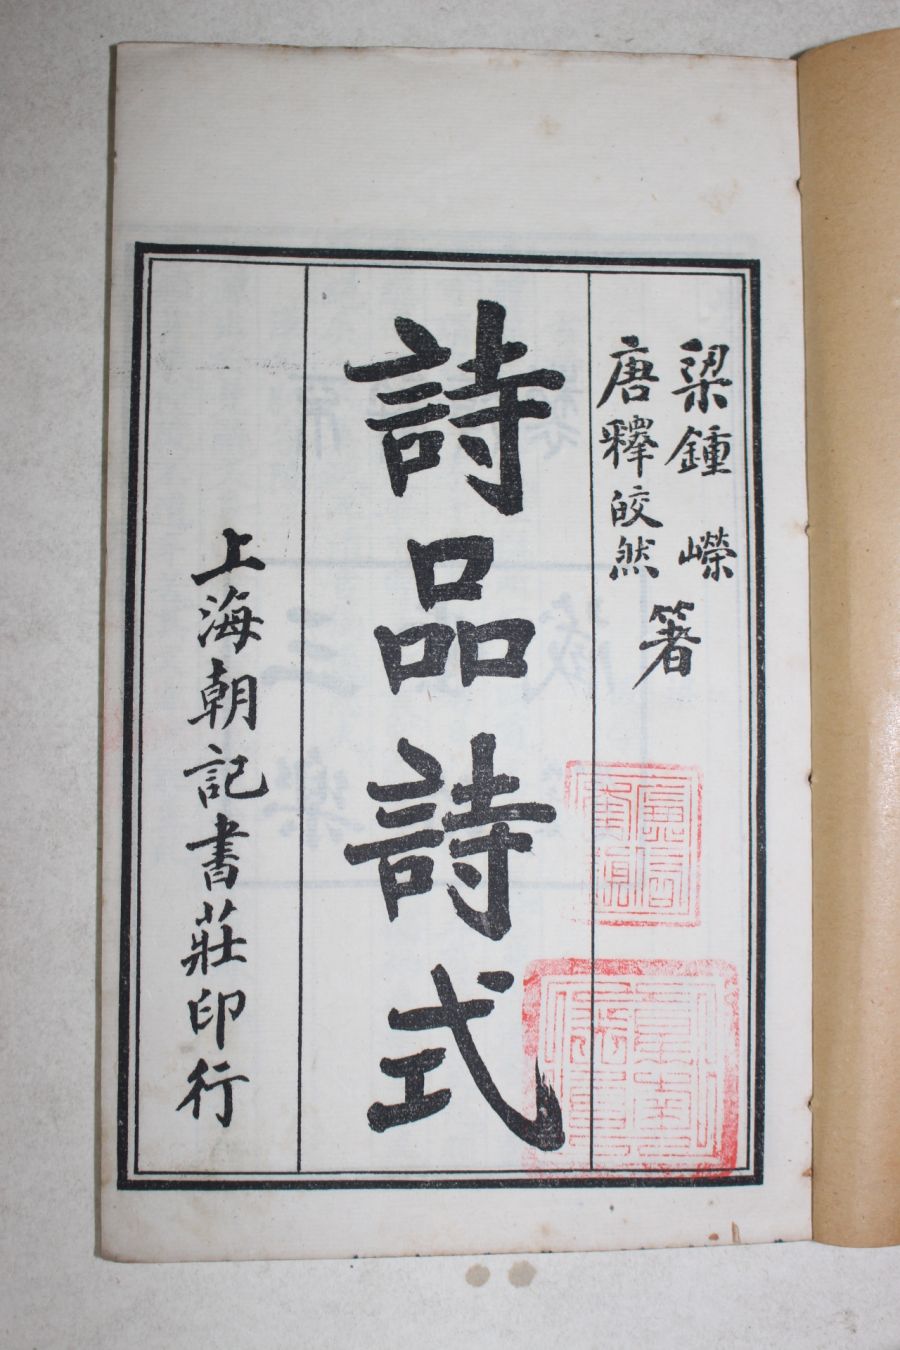 梁鍾嶸
唐釋皎然
著
詩品詩式
上海朝記書莊印行